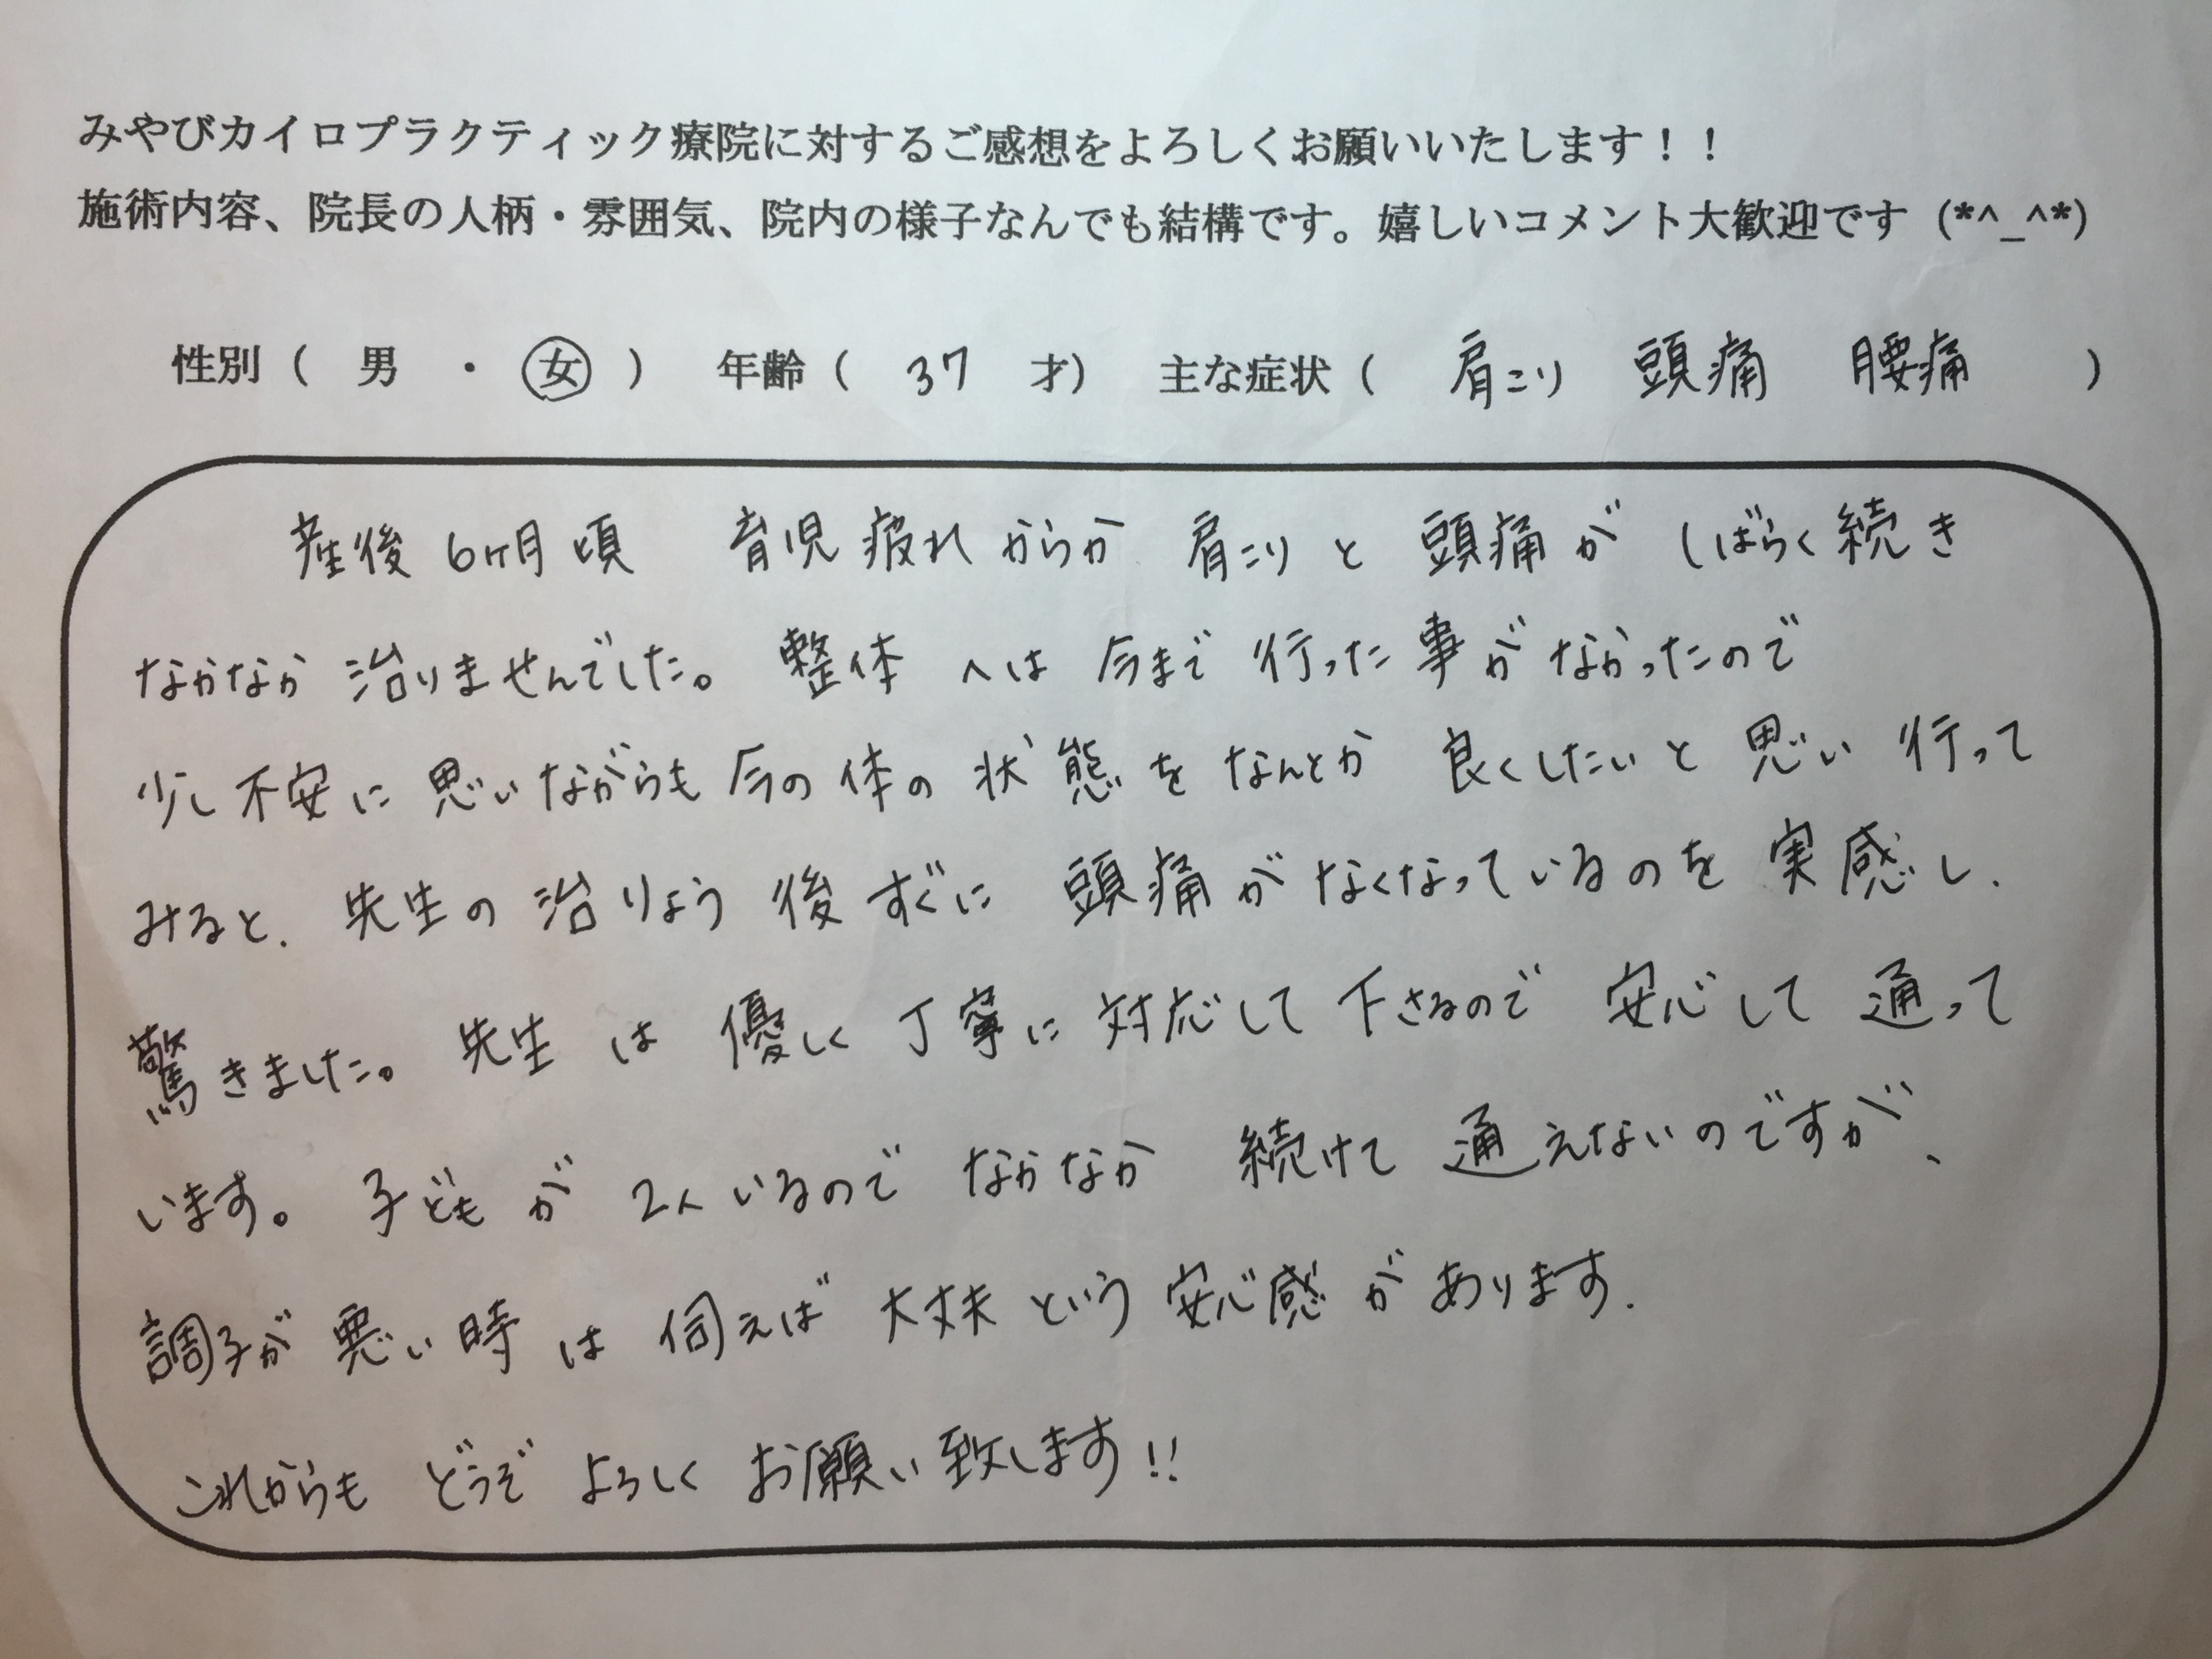 みやびカイロプラクティック療院に対するご感想をよろしくお願いいたします！！
施術内容、院長の人柄・雰囲気、院内の様子なんでも結構です。嬉しいコメント大歓迎です (*^_^*)
性別（ 男 ・ 女 ） 年齢（ 37 才） 主な症状（ 肩こり 頭痛 腰痛 ）
産後6ヶ月頃 育児疲れからか 肩こりと 頭痛が しばらく続き
なかなか 治りませんでした。 整体 へは 今まで 行った事がなかったので
少し不安に 思いながらも 今の体の 状態を なんとか 良くしたいと 思い 行って
みると、先生の 治りょう 後 すぐに 頭痛がなくなっているのを 実感し、
驚きました。 先生 は 優しく 丁寧に 対応して 下さるので 安心して 通って
います。 子どもが 2人いるので なかなか 続けて 通えないのですが、
調子が 悪い時 は 伺えば 大丈夫 という 安心感があります。
これからも どうぞ よろしく お願い致します!!